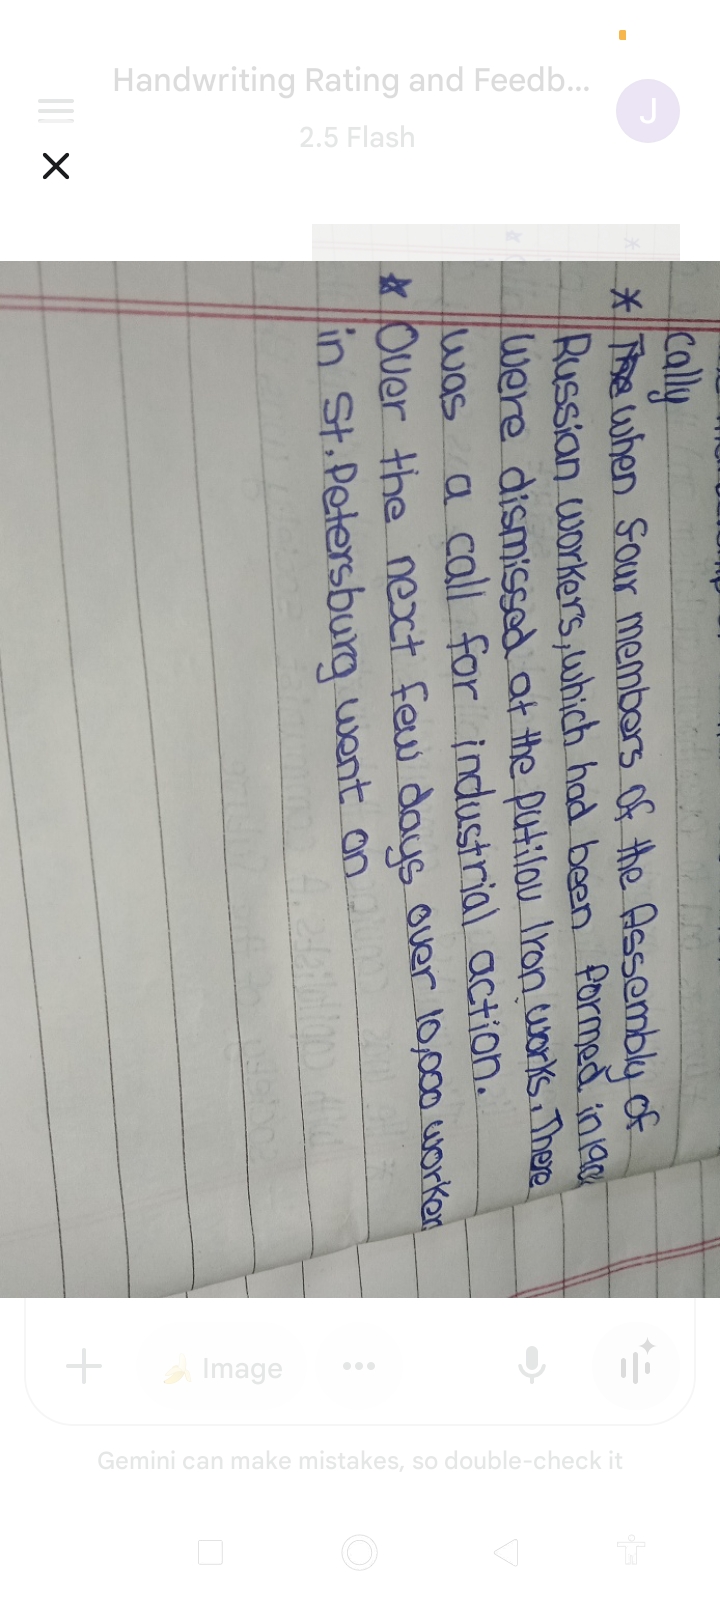 Handwriting Rating and Feedb...
2.5 Flash
J
cally
* The when four members of the Assembly of
Russian workers, which had been formed in
were dismissed at the Putilov Iron works. There
was a call for industrial action.
* Over the next few days over 10,000 worker
in St. Petersburg went on
Image
Gemini can make mistakes, so double-check it